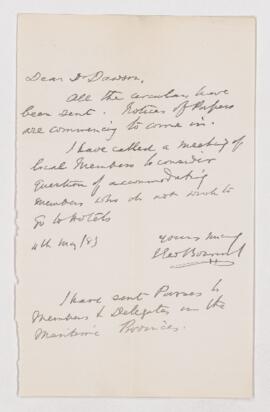 Dear Dr Dawson,
All the circulars have
been sent. Notices of Papers
are commencing to come in.
I have called a meeting of
local Members to consider
question of accommodating
members who do not wish to
go to Hotels
4th May/83
Yours truly
I have sent Passes to
Members & Delegates in the
Maritime Provinces.